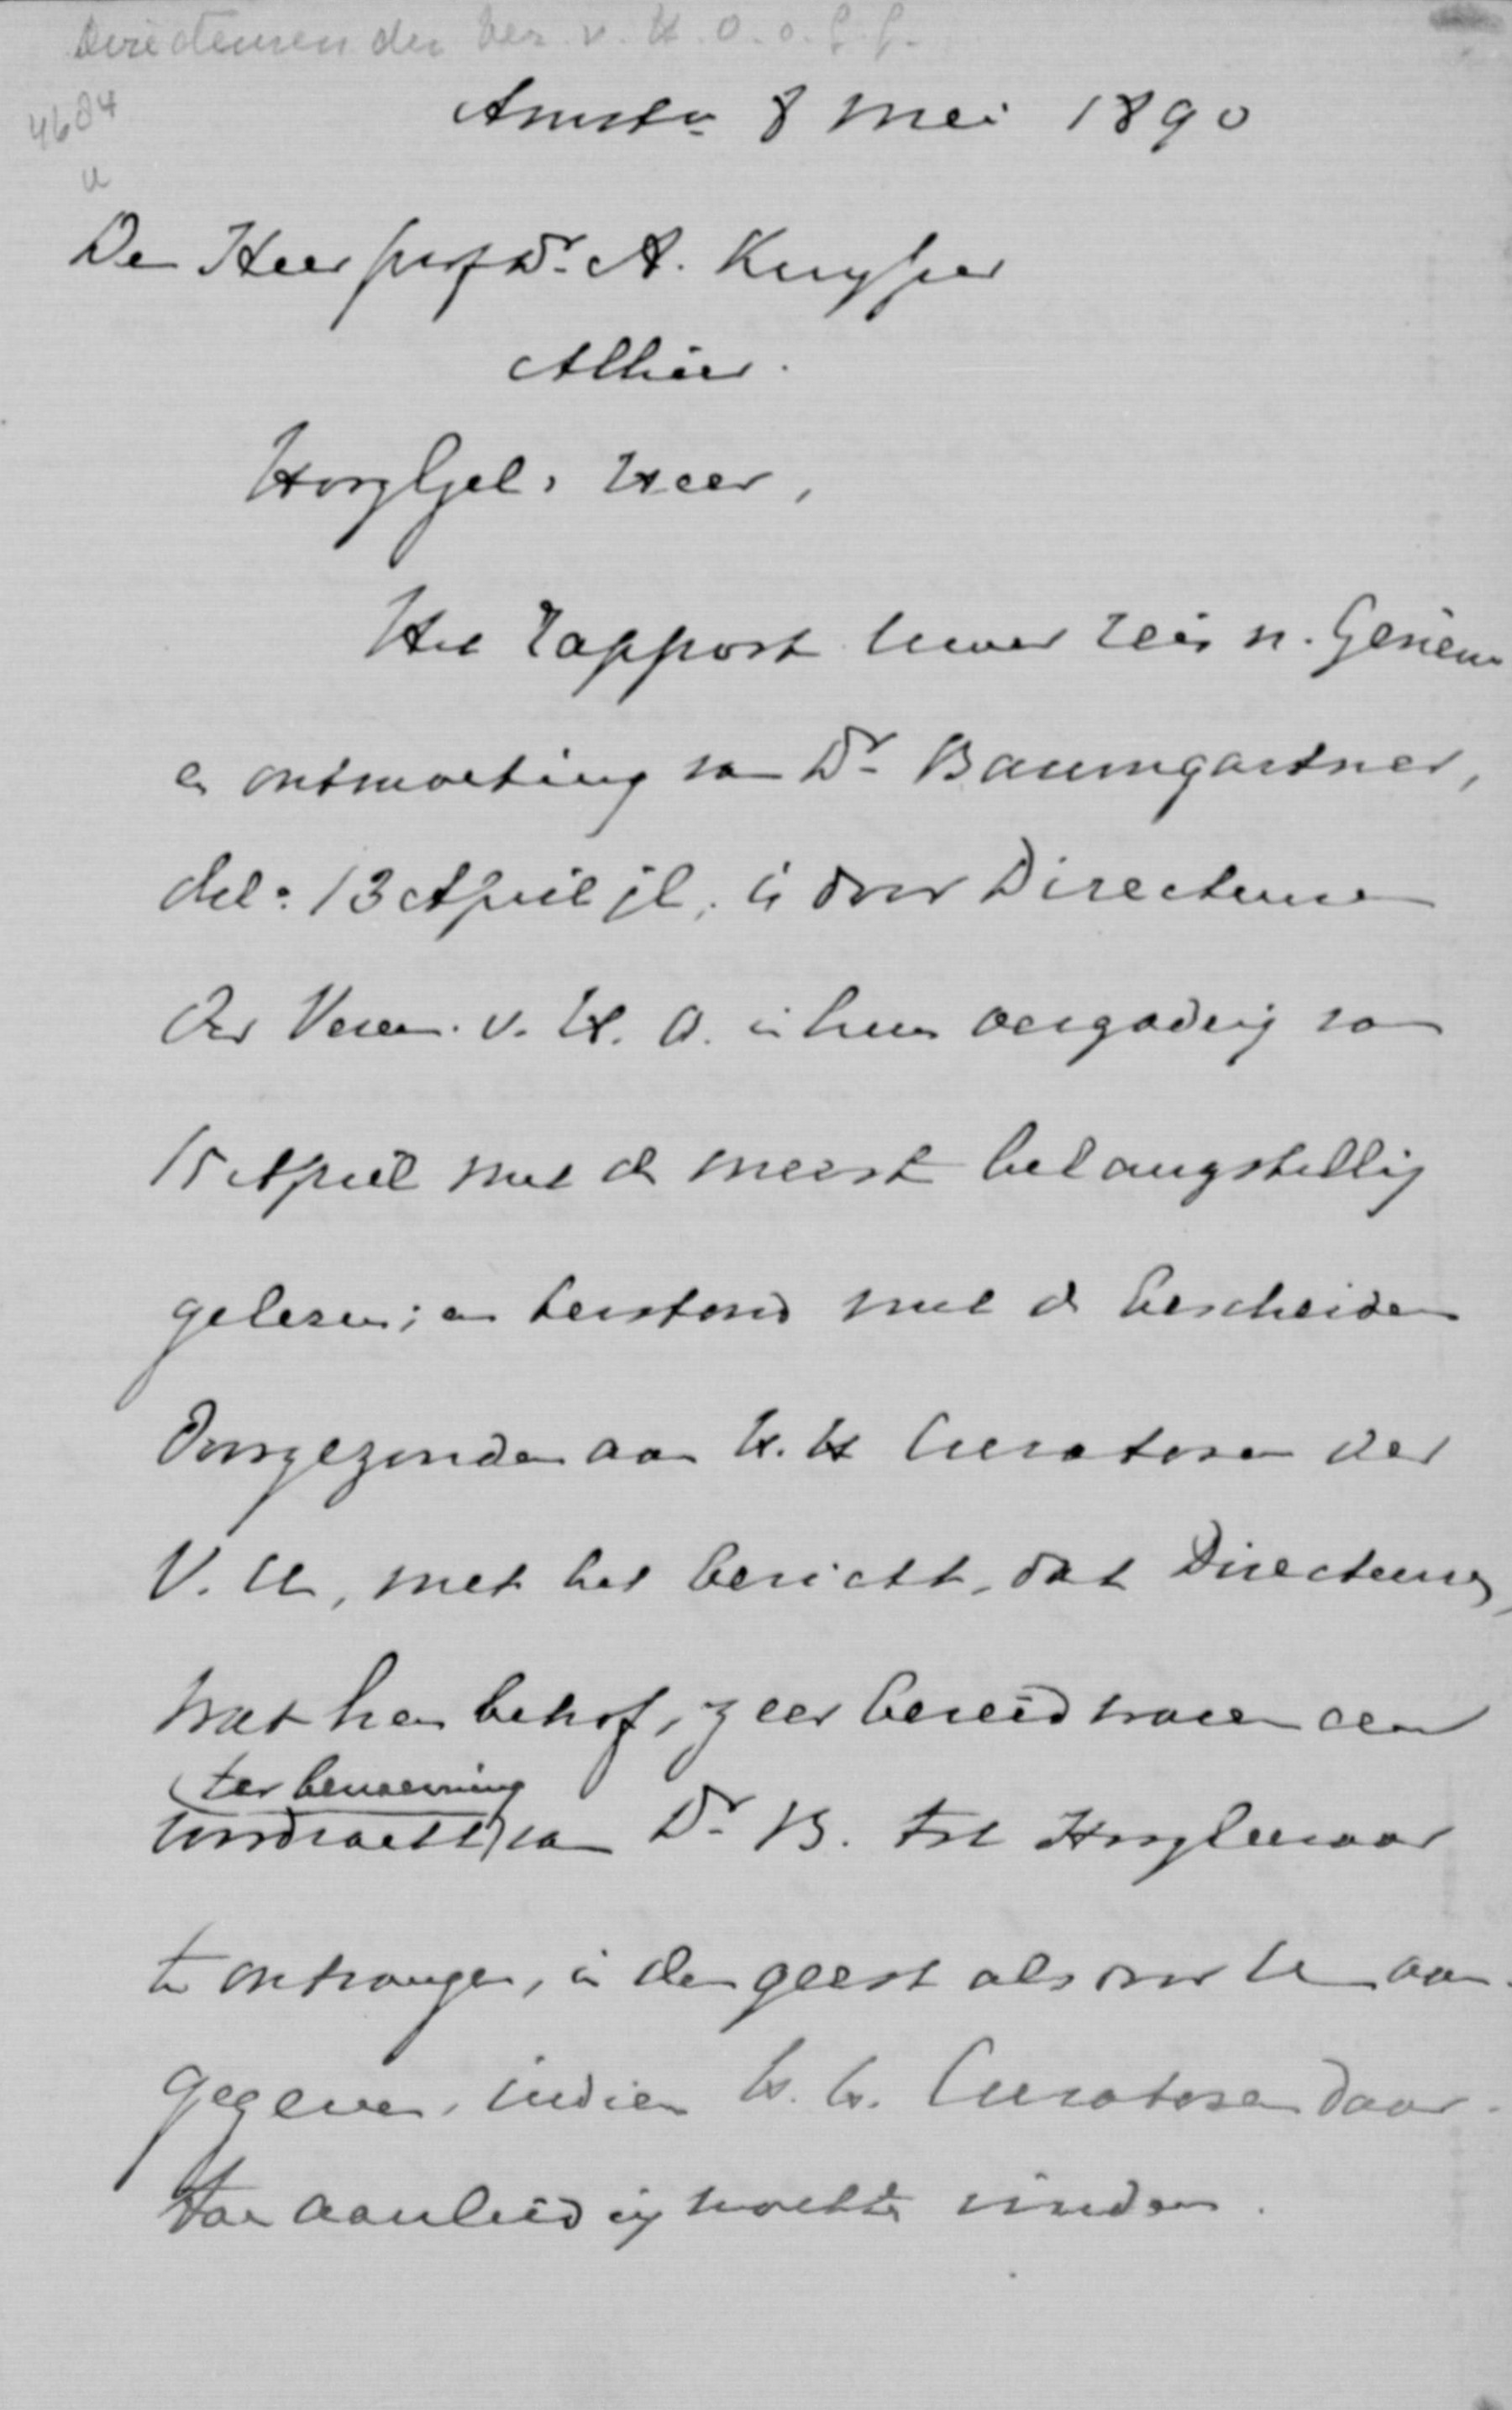 Directeuren der Ver. v. H. O. o. G. G.
4684
u
Amstm 8 Mei 1890
Den Heer Prof Dr. A. Kuyper
Alhier.
HoogGel. Heer,
Het Rapport Uwer reis n. Genève
en ontmoeting van Dr Baumgartner,
dd. 13 April jl. is door Directeuren
der Veren. v. H. O. in hun vergadering van
15 April met de meest belangstelling
gelezen; en terstond met de bescheiden
doorgezonden aan H.H Curatoren der
V.U, met het bericht, dat Directeuren,
wat hen betrof, zeer bereid waren een
ter benoeming
voordracht van Dr B. tot Hoogleeraar
te ontvangen, in den geest als door U aan-
gegeven, indien H.H. Curatoren daar-
toe aanleiding mochten vinden.